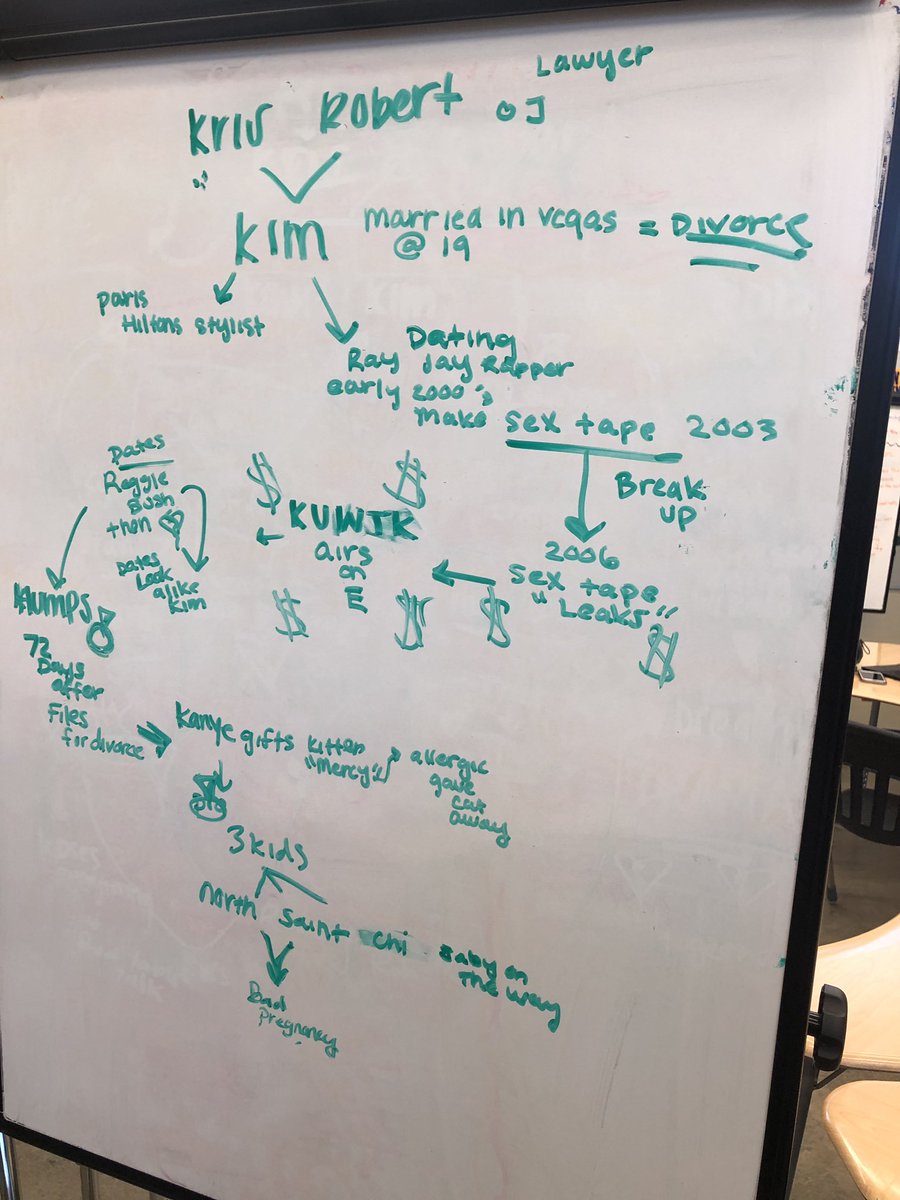 Lawyer
Kris Robert OJ
Kim married in vegas = Divorce
@ 19
paris
Hiltons stylist
Dating
Ray Jay Rapper
early 2000's
make sex tape 2003
Break
up
2006
sex tape
"Leaks"
$
$ $
KUWTK
airs
on
E
$ $ $
Dates
Reggie
Bush
then
Dates
Look
alike
Kim
Humps
72
Days
after
Files
for divorce
Kanye gifts kitten
"mercy"
allergic
gave
cat
away
3 kids
north saint chi Baby on
the way
Bad
Pregnancy